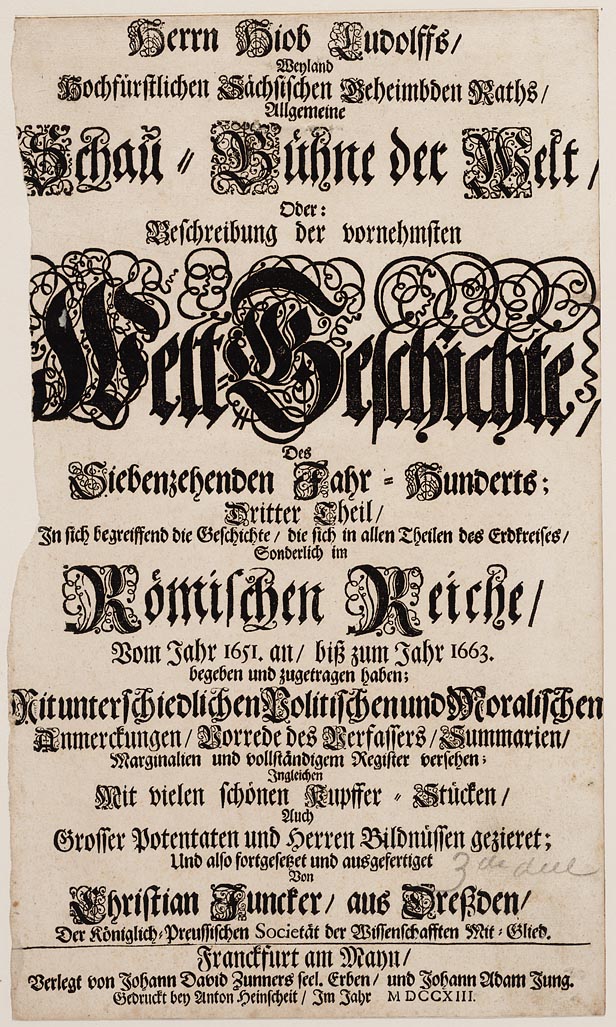 Herrn Hiob Ludolffs/
Weyland
Hochfürstlichen Sächsischen Geheimbden Raths/
Allgemeine
Schau-Bühne der Welt/
Oder:
Beschreibung der vornehmsten
Welt-Geschichte/
Des
Siebenzehenden Jahr-Hunderts;
Dritter Theil/
In sich begreiffend die Geschichte/ die sich in allen Theilen des Erdkreises/
Sonderlich im
Römischen Reiche/
Vom Jahr 1651. an/ biß zum Jahr 1663.
begeben und zugetragen haben;
Mit unterschiedlichen Politischen und Moralischen
Anmerckungen/ Vorrede des Verfassers/ Summarien/
Marginalien und vollständigem Register versehen;
Ingleichen
Mit vielen schönen Kupffer-Stücken/
Auch
Grosser Potentaten und Herren Bildnüssen gezieret;
Und also fortgesetzet und ausgefertiget
3de deel
Von
Christian Juncker/ aus Dreßden/
Der Königlich-Preussischen Societät der Wissenschafften Mit-Glied.
Franckfurt am Mayn/
Verlegt von Johann David Zunners seel. Erben/ und Johann Adam Jung.
Gedruckt bey Anton Heinscheit/ Im Jahr MDCCXIII.